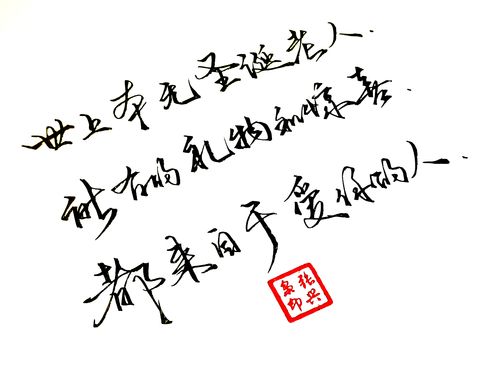 世上本无圣诞老人.
所有的礼物和惊喜.
都来自于爱你的人.
张兴
印